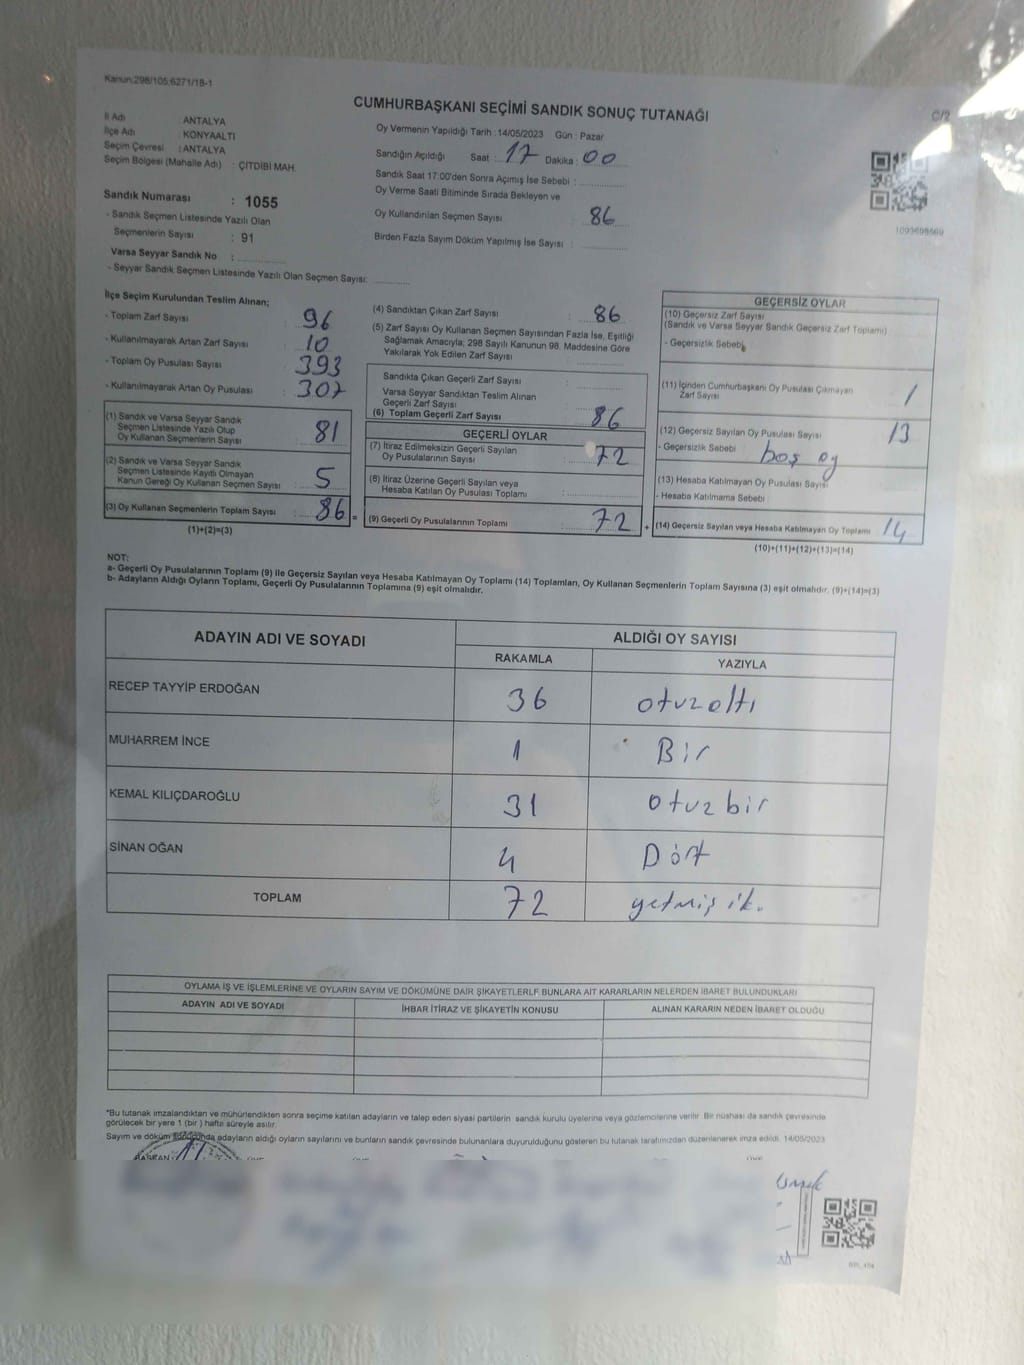 Kanun:298/105,6271/18-1
CUMHURBAŞKANI SEÇİMİ SANDIK SONUÇ TUTANAĞI
C/2
İl Adı : ANTALYA
İlçe Adı : KONYAALTI
Seçim Çevresi : ANTALYA
Seçim Bölgesi (Mahalle Adı) : ÇITDİBİ MAH.
Sandık Numarası : 1055
- Sandık Seçmen Listesinde Yazılı Olan
Seçmenlerin Sayısı : 91
Varsa Seyyar Sandık No :
- Seyyar Sandık Seçmen Listesinde Yazılı Olan Seçmen Sayısı:
Oy Vermenin Yapıldığı Tarih : 14/05/2023 Gün : Pazar
Sandığın Açıldığı Saat : 17 Dakika : 00
Sandık Saat 17:00'den Sonra Açımış İse Sebebi :
Oy Verme Saati Bitiminde Sırada Bekleyen ve
Oy Kullandırılan Seçmen Sayısı : 86
Birden Fazla Sayım Döküm Yapılmış İse Sayısı :
İlçe Seçim Kurulundan Teslim Alınan;
- Toplam Zarf Sayısı : 96
- Kullanılmayarak Artan Zarf Sayısı : 10
- Toplam Oy Pusulası Sayısı : 393
- Kullanılmayarak Artan Oy Pusulası : 307
(1) Sandık ve Varsa Seyyar Sandık
Seçmen Listesinde Yazılı Olup
Oy Kullanan Seçmenlerin Sayısı : 81
(2) Sandık ve Varsa Seyyar Sandık
Seçmen Listesinde Kayıtlı Olmayan
Kanun Gereği Oy Kullanan Seçmen Sayısı : 5
(3) Oy Kullanan Seçmenlerin Toplam Sayısı : 86 =
(1)+(2)=(3)
(4) Sandıktan Çıkan Zarf Sayısı : 86
(5) Zarf Sayısı Oy Kullanan Seçmen Sayısından Fazla İse, Eşitliği
Sağlamak Amacıyla; 298 Sayılı Kanunun 98. Maddesine Göre
Yakılarak Yok Edilen Zarf Sayısı :
Sandıkta Çıkan Geçerli Zarf Sayısı :
Varsa Seyyar Sandıktan Teslim Alınan
Geçerli Zarf Sayısı :
(6) Toplam Geçerli Zarf Sayısı : 86
GEÇERLİ OYLAR
(7) İtiraz Edilmeksizin Geçerli Sayılan
Oy Pusulalarının Sayısı : 72
(8) İtiraz Üzerine Geçerli Sayılan veya
Hesaba Katılan Oy Pusulası Toplamı :
(9) Geçerli Oy Pusulalarının Toplamı : 72 +
GEÇERSİZ OYLAR
(10) Geçersiz Zarf Sayısı
(Sandık ve Varsa Seyyar Sandık Geçersiz Zarf Toplamı)
- Geçersizlik Sebebi
(11) İçinden Cumhurbaşkanı Oy Pusulası Çıkmayan
Zarf Sayısı 1
(12) Geçersiz Sayılan Oy Pusulası Sayısı 13
- Geçersizlik Sebebi boş oy
(13) Hesaba Katılmayan Oy Pusulası Sayısı
- Hesaba Katılmama Sebebi :
(14) Geçersiz Sayılan veya Hesaba Katılmayan Oy Toplamı 14
(10)+(11)+(12)+(13)=(14)
NOT:
a- Geçerli Oy Pusulalarının Toplamı (9) ile Geçersiz Sayılan veya Hesaba Katılmayan Oy Toplamı (14) Toplamları, Oy Kullanan Seçmenlerin Toplam Sayısına (3) eşit olmalıdır. (9)+(14)=(3)
b- Adayların Aldığı Oyların Toplamı, Geçerli Oy Pusulalarının Toplamına (9) eşit olmalıdır.
ADAYIN ADI VE SOYADI ALDIĞI OY SAYISI
RAKAMLA YAZIYLA
RECEP TAYYİP ERDOĞAN 36 otuzaltı
MUHARREM İNCE 1 Bir
KEMAL KILIÇDAROĞLU 31 otuzbir
SİNAN OĞAN 4 Dört
TOPLAM 72 yetmiş ik.
OYLAMA İŞ VE İŞLEMLERİNE VE OYLARIN SAYIM VE DÖKÜMÜNE DAİR ŞİKAYETLERLE BUNLARA AİT KARARLARIN NELERDEN İBARET BULUNDUKLARI
ADAYIN ADI VE SOYADI İHBAR İTİRAZ VE ŞİKAYETİN KONUSU ALINAN KARARIN NEDEN İBARET OLDUĞU
"Bu tutanak imzalandıktan ve mühürlendikten sonra seçime katılan adayların ve talep eden siyasi partilerin sandık kurulu üyelerine veya gözlemcilerine verilir. Bir nüshası da sandık çevresinde
görülecek bir yere 1 (bir ) hafta süreyle asılır.
Sayım ve döküm sonucunda adayların aldığı oyların sayılarını ve bunların sandık çevresinde bulunanlara duyurulduğunu gösteren bu tutanak tarafımızdan düzenlenerek imza edildi. 14/05/2023
BAŞKAN